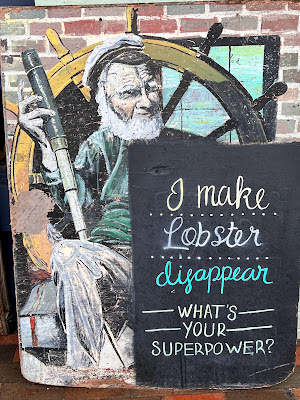 I make
Lobster
disappear
WHAT'S
YOUR
SUPERPOWER?